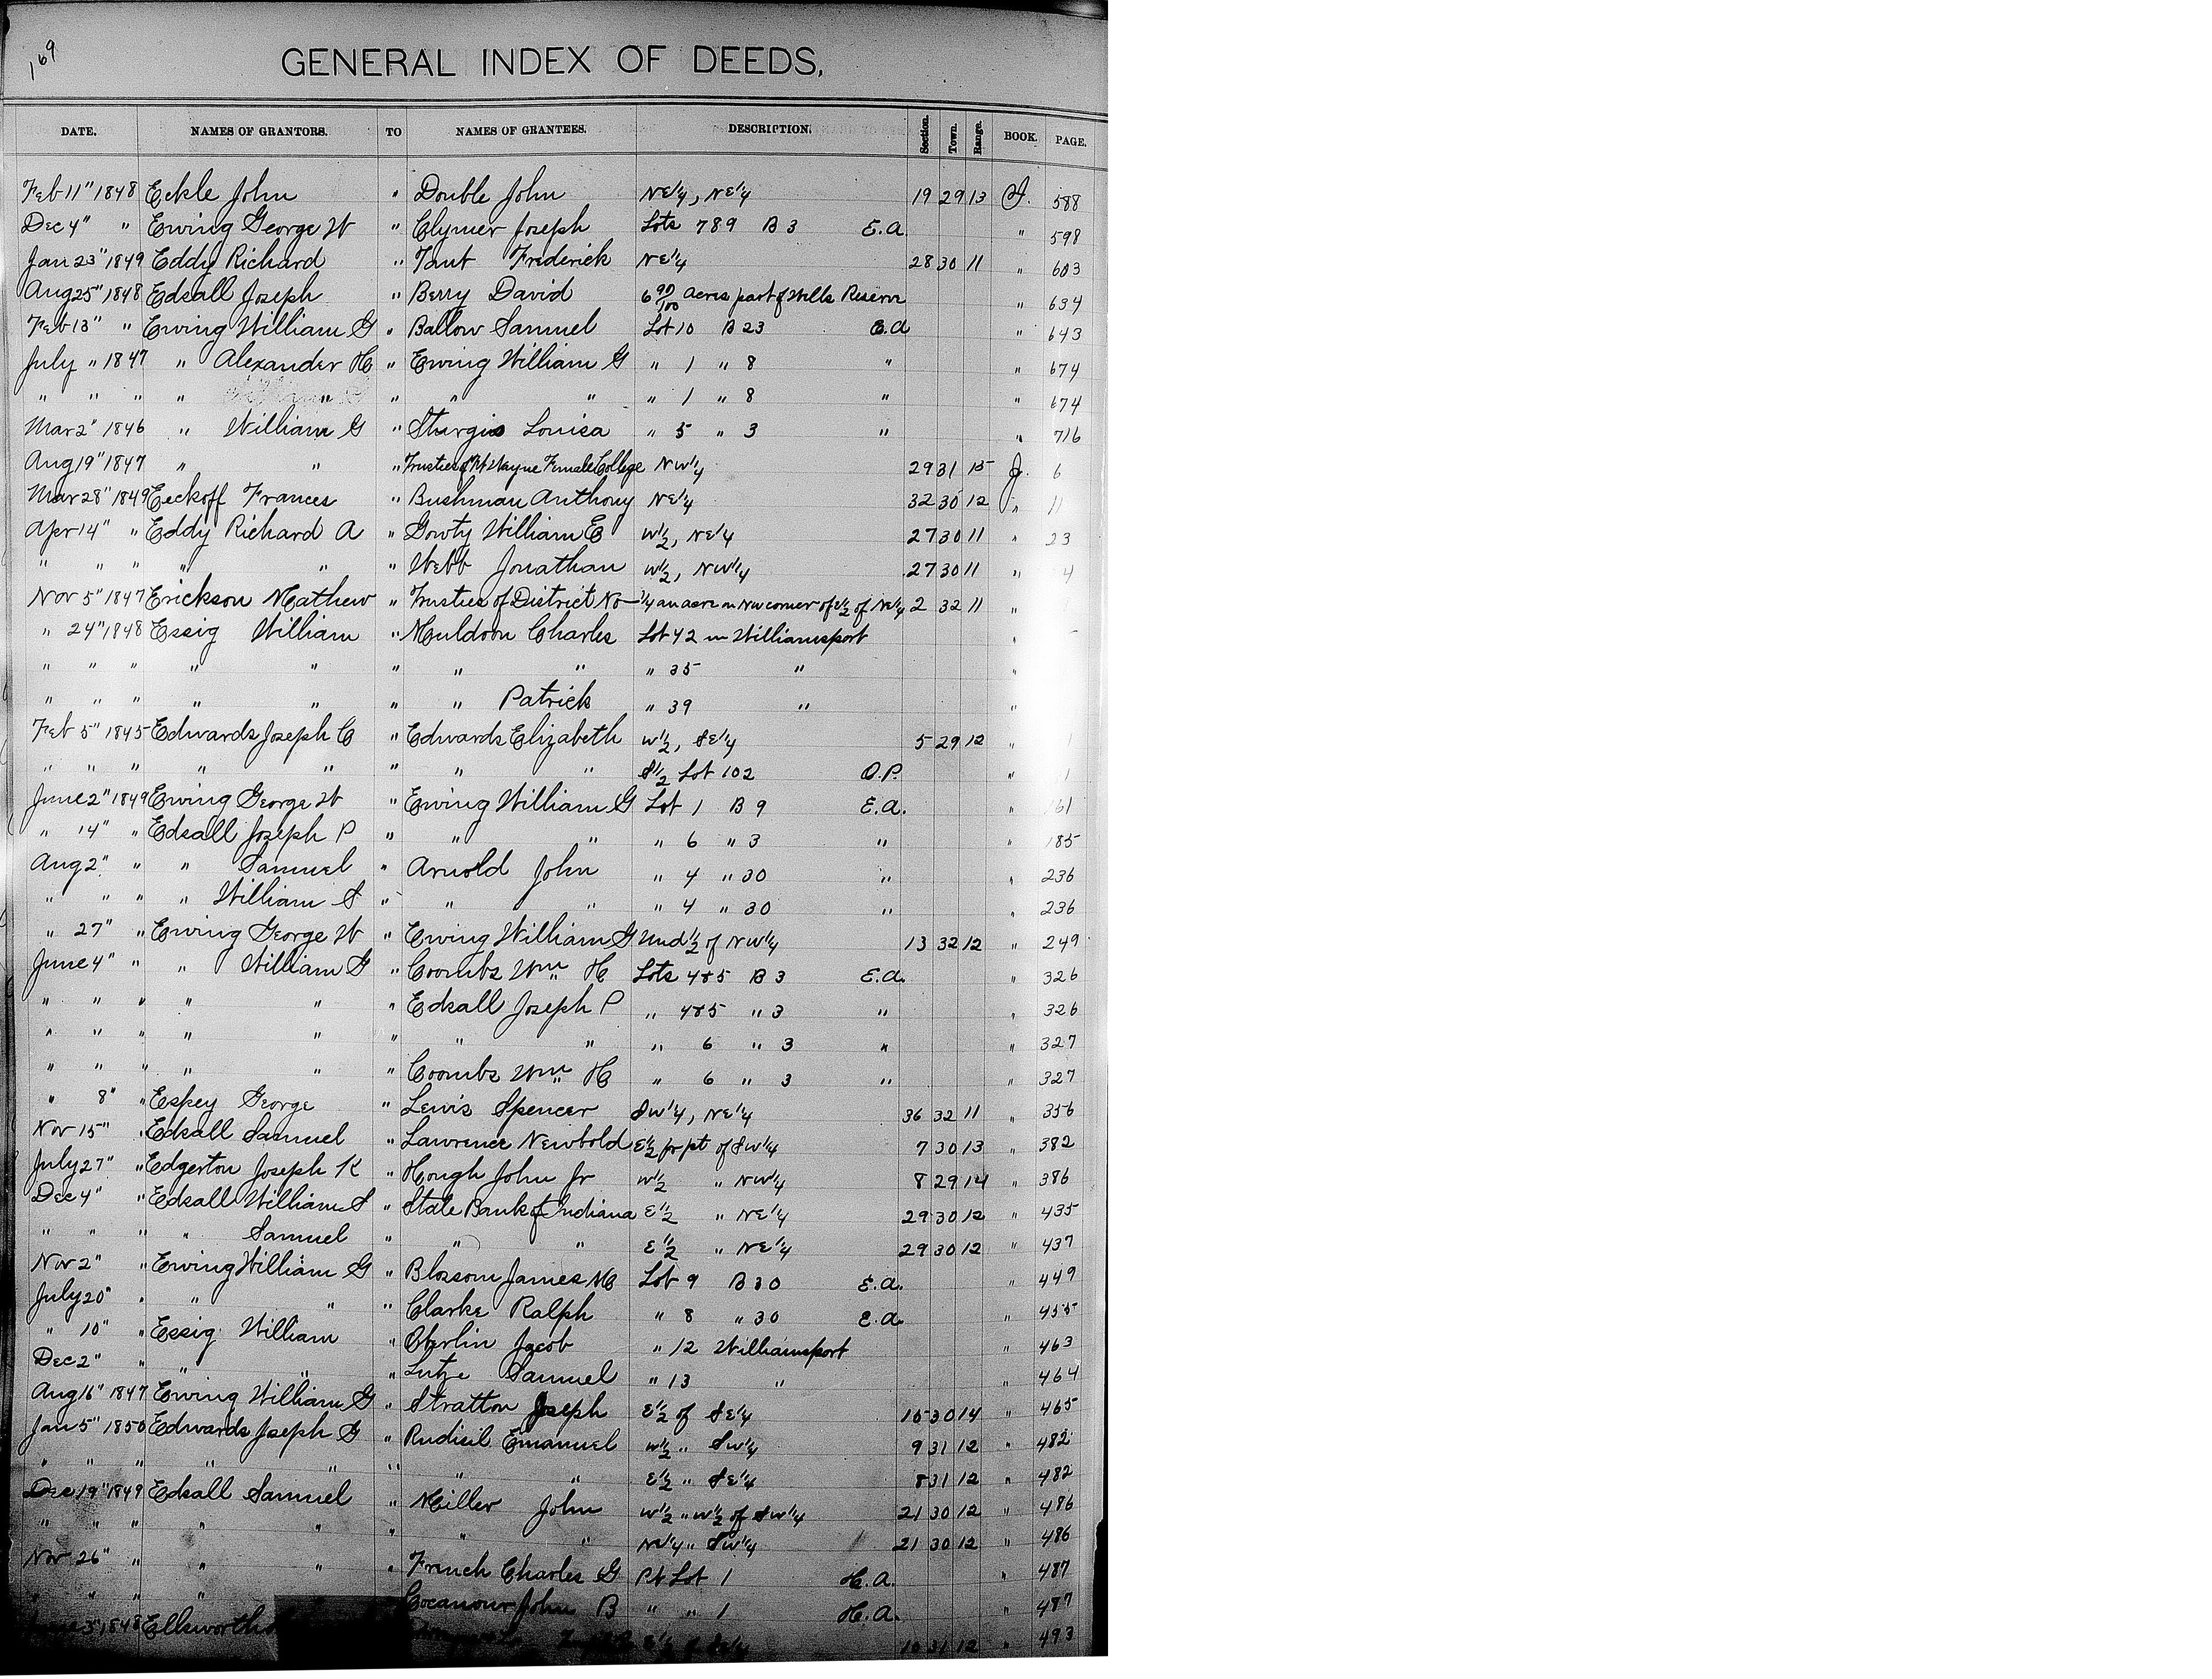 169
GENERAL INDEX OF DEEDS,
DATE. NAMES OF GRANTORS. TO NAMES OF GRANTEES. DESCRIPTION. Section. Town. Range. BOOK. PAGE.
Feb 11" 1848 Eckle John " Double John NE1/4, NE1/4 19 29 13 I. 588
Dec 4" " Ewing George W " Clymer Joseph Lots 789 B 3 E.A. " 598
Jan 23" 1849 Eddy Richard " Taut Frederick NE1/4 28 30 11 " 603
Aug 25" 1848 Edsall Joseph " Berry David 6 90/100 acres part of Wells Reserve " 634
Feb 13" " Ewing William G " Ballow Samuel Lot 10 B 23 E.A " 643
July " 1847 " Alexander H " Ewing William G " 1 " 8 " " 674
" " " " " " " " " 1 " 8 " " 674
Mar 2" 1846 " William G " Sturgis Louisa " 5 " 3 " " 716
Aug 19" 1847 " " " Trustees of Ft Wayne Female College NW1/4 29 31 15 J. 6
Mar 28" 1849 Eeckoff Frances " Bushman Anthony NE1/4 32 30 12 " 11
Apr 14" " Eddy Richard A " Gowty William E W1/2, NE1/4 27 30 11 " 23
" " " " " " Webb Jonathan W1/2, NW1/4 27 30 11 " 4
Nov 5" 1847 Erickson Mathew " Trustees of District No — 1/4 an acre in NW corner of E1/2 of NE1/4 2 32 11 "
" 24" 1848 Essig William " Muldoon Charles Lot 42 in Williamsport "
" " " " " " " " " 35 " "
" " " " " " " Patrick " 39 " "
Feb 5" 1845 Edwards Joseph C " Edwards Elizabeth W1/2, SE1/4 5 29 12 " 1
" " " " " " " " S1/2 Lot 102 O.P. " 1
June 2" 1849 Ewing George W " Ewing William G Lot 1 B 9 E.A. " 161
" 14" " Edsall Joseph P " " " " 6 " 3 " " 185
Aug 2" " " Samuel " Arnold John " 4 " 30 " " 236
" " " " William S " " " " 4 " 30 " " 236
" 27" " Ewing George W " Ewing William G Und 1/2 of NW1/4 13 32 12 " 249
June 4" " " William G " Coombs Wm H Lots 4&5 B 3 E.A. " 326
" " " " " " Edsall Joseph P " 4&5 " 3 " " 326
" " " " " " " " " 6 " 3 " " 327
" " " " " " Coombs Wm H " 6 " 3 " " 327
" 8" " Espey George " Lewis Spencer SW1/4, NE1/4 36 32 11 " 356
Nov 15" " Edsall Samuel " Lawrence Newbold E1/2 fr pt of SW1/4 7 30 13 " 382
July 27" " Edgerton Joseph K " Hough John Jr W1/2 " NW1/4 8 29 14 " 386
Dec 4" " Edsall William S " State Bank of Indiana E1/2 " NE1/4 29 30 12 " 435
" " " " Samuel " " " E1/2 " NE1/4 29 30 12 " 437
Nov 2" " Ewing William G " Blossom James M Lot 9 B 30 E.A. " 449
July 20" " " " " Clarke Ralph " 8 " 30 E.A. " 455
" 10" " Essig William " Oberlin Jacob " 12 Williamsport " 463
Dec 2" " " " " Lutze Samuel " 13 " " 464
Aug 16" 1847 Ewing William G " Stratton Joseph E1/2 of SE1/4 15 30 14 " 465
Jan 5" 1850 Edwards Joseph G " Rudicil Emanuel W1/2 " SW1/4 9 31 12 " 482
" " " " " " " " E1/2 " SE1/4 8 31 12 " 482
Dec 19" 1849 Edsall Samuel " Miller John W1/2 " W1/2 of SW1/4 21 30 12 " 486
" " " " " " " " NE1/4 " SW1/4 21 30 12 " 486
Nov 26" " " " " French Charles G Pt Lot 1 H.A. " 487
" " " " " " Cocanour John B " " 1 H.A. " 487
3" 1848 Ellsworth E1/2 of 10 31 12 " 493